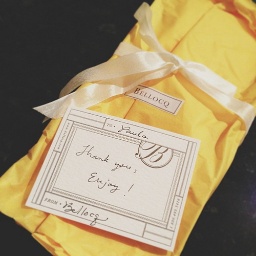 BELLOCQ
TO: Paula
B
Thank you,
Enjoy!
FROM: Bellocq